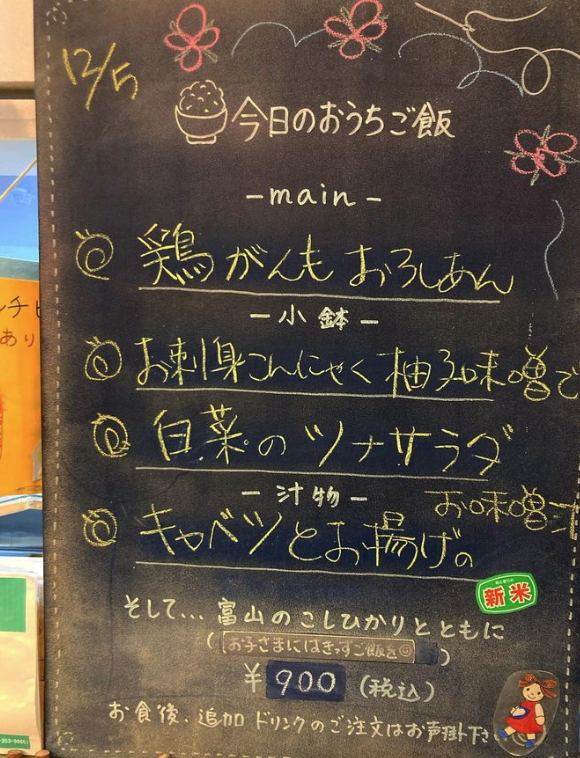 12/5
今日のおうちご飯
-main-
鶏がんも おろしあん
-小鉢-
お刺身こんにゃく 柚子味噌で
白菜のツナサラダ
-汁物-
お味噌汁
キャベツとお揚げの
新米
そして... 富山のこしひかりとともに
(お子さまにはきっずご飯を)
¥900 (税込)
お食後、追加ドリンクのご注文はお声掛け下さ
チ
あり